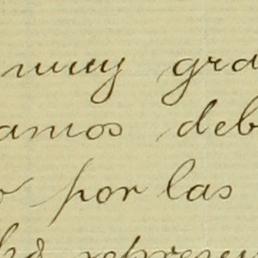 muy gra
amos deb
o por las